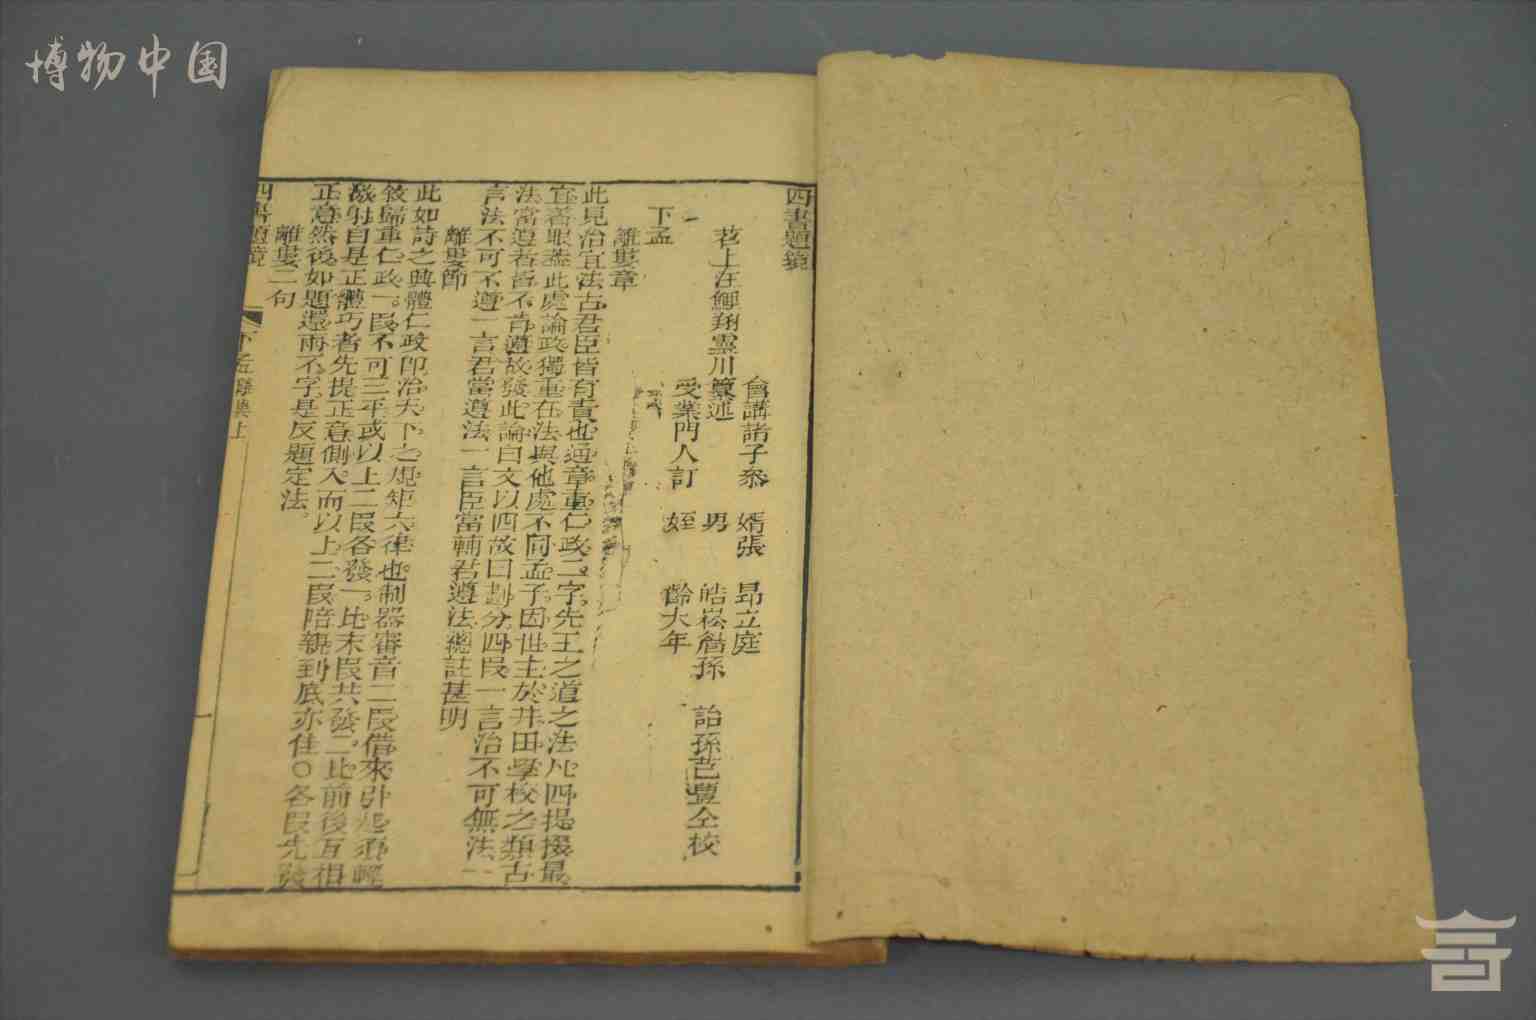 博物中国
四書題鏡
苕上汪鯉翔靈川纂述
會講諸子叅 婿張 昂立庭
受業門人訂 男 皓崧詹孫 詒孫芑豐仝校
姪 齡大年
下孟
離婁章
此見治宜法古君臣皆有責也通章重仁政二字先王之道之法凡四提掇最
宜着眼葢此處論政獨重在法與他處不同孟子因世主於井田學校之類古
法當遵者皆不肯遵故發此論白文以四故曰劃分四段一言治不可無法一
言法不可不遵一言君當遵法一言臣當輔君遵法總註甚明
離婁節
此如詩之興體仁政即治天下之規矩六律也制器審音二段借來引起須輕
敘歸重仁政一段不可三平或以上二段各發一比末段共發二比前後互相
激射自是正體巧者先提正意側入而以上二段陪襯到底亦佳〇各段先發
正意然後如題還兩不字是反題定法。
離婁二句
四書題鏡 下孟離婁上